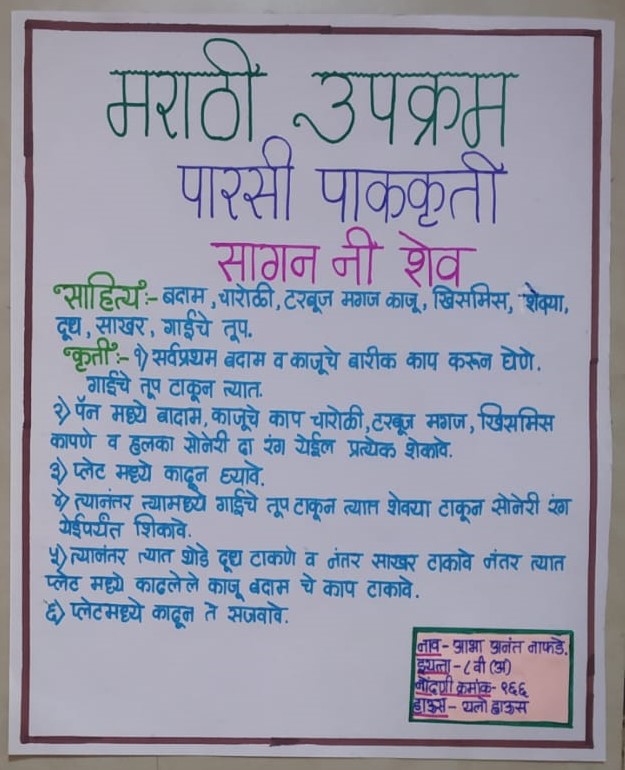 मराठी उपक्रम
पारसी पाककृती
सागन नी शेव
"साहित्य":- बदाम, चारोळी, टरबूज मगज काजू, खिसमिस, शेवया,
दूध, साखर, गाईचे तूप.
"कृती":- १) सर्वप्रथम बदाम व काजूचे बारीक काप करून घेणे.
गाईचे तूप टाकून त्यात.
२) पॅन मध्ये बादाम, काजूचे काप चारोळी, टरबूज मगज, खिसमिस
कापणे व हलका सोनेरी दा रंग येईल प्रत्येक शेकावे.
३) प्लेट मध्ये काढून घ्यावे.
४) त्यानंतर त्यामध्ये गाईचे तूप टाकून त्यात शेवया टाकून सोनेरी रंग
येईपर्यंत शिकावे.
५) त्यानंतर त्यात थोडे दूध टाकणे व नंतर साखर टाकावे नंतर त्यात
प्लेट मध्ये काढलेले काजू बदाम चे काप टाकावे.
६) प्लेटमध्ये काढून ते सजवावे.
नाव - आभा अनंत नाफडे.
इयत्ता - ८ वी (अ)
नोंदणी क्रमांक - १६६
हाऊस - यलो हाऊस